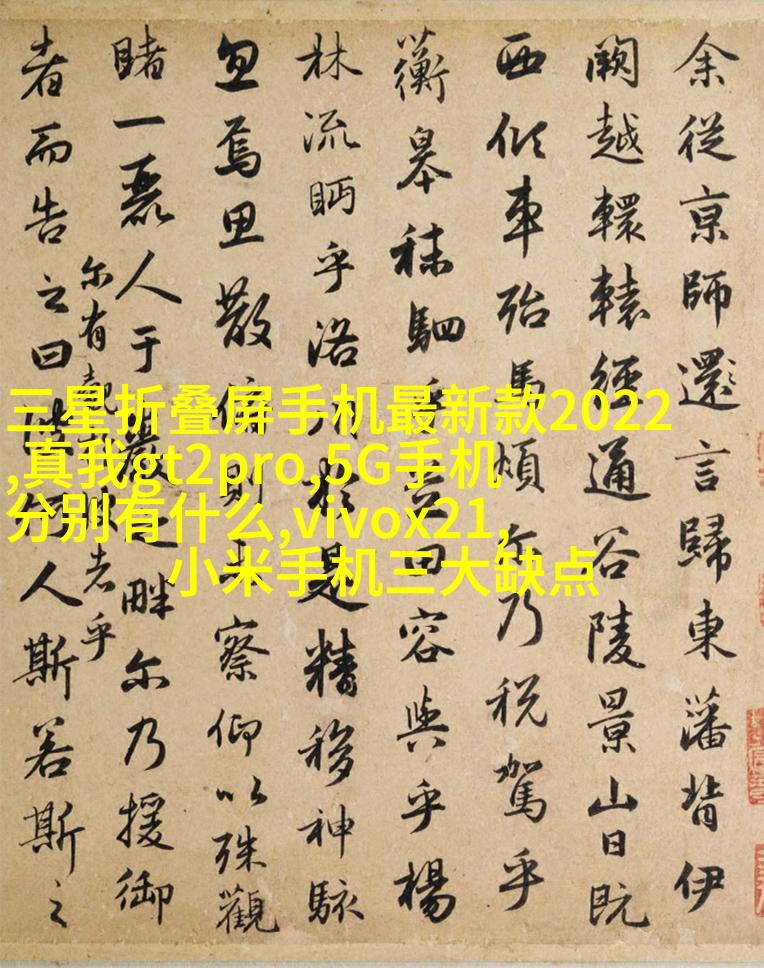 余從京師還言歸東藩背伊
闕越轘轅經通谷陵景山日既
西傾車殆馬煩尔乃税駕乎
蘅皋秣駟乎芝田容與乎楊
林流眄乎洛川於是精移神駭
忽焉思散俯則未察仰以殊觀
睹一麗人于巖之畔尔乃援御
尔有覿彼者乎
者而告之曰彼何人斯若斯之
三星折叠屏手机最新款2022
,真我gt2pro,5G手机
分别有什么,vivox21,
小米手机三大缺点